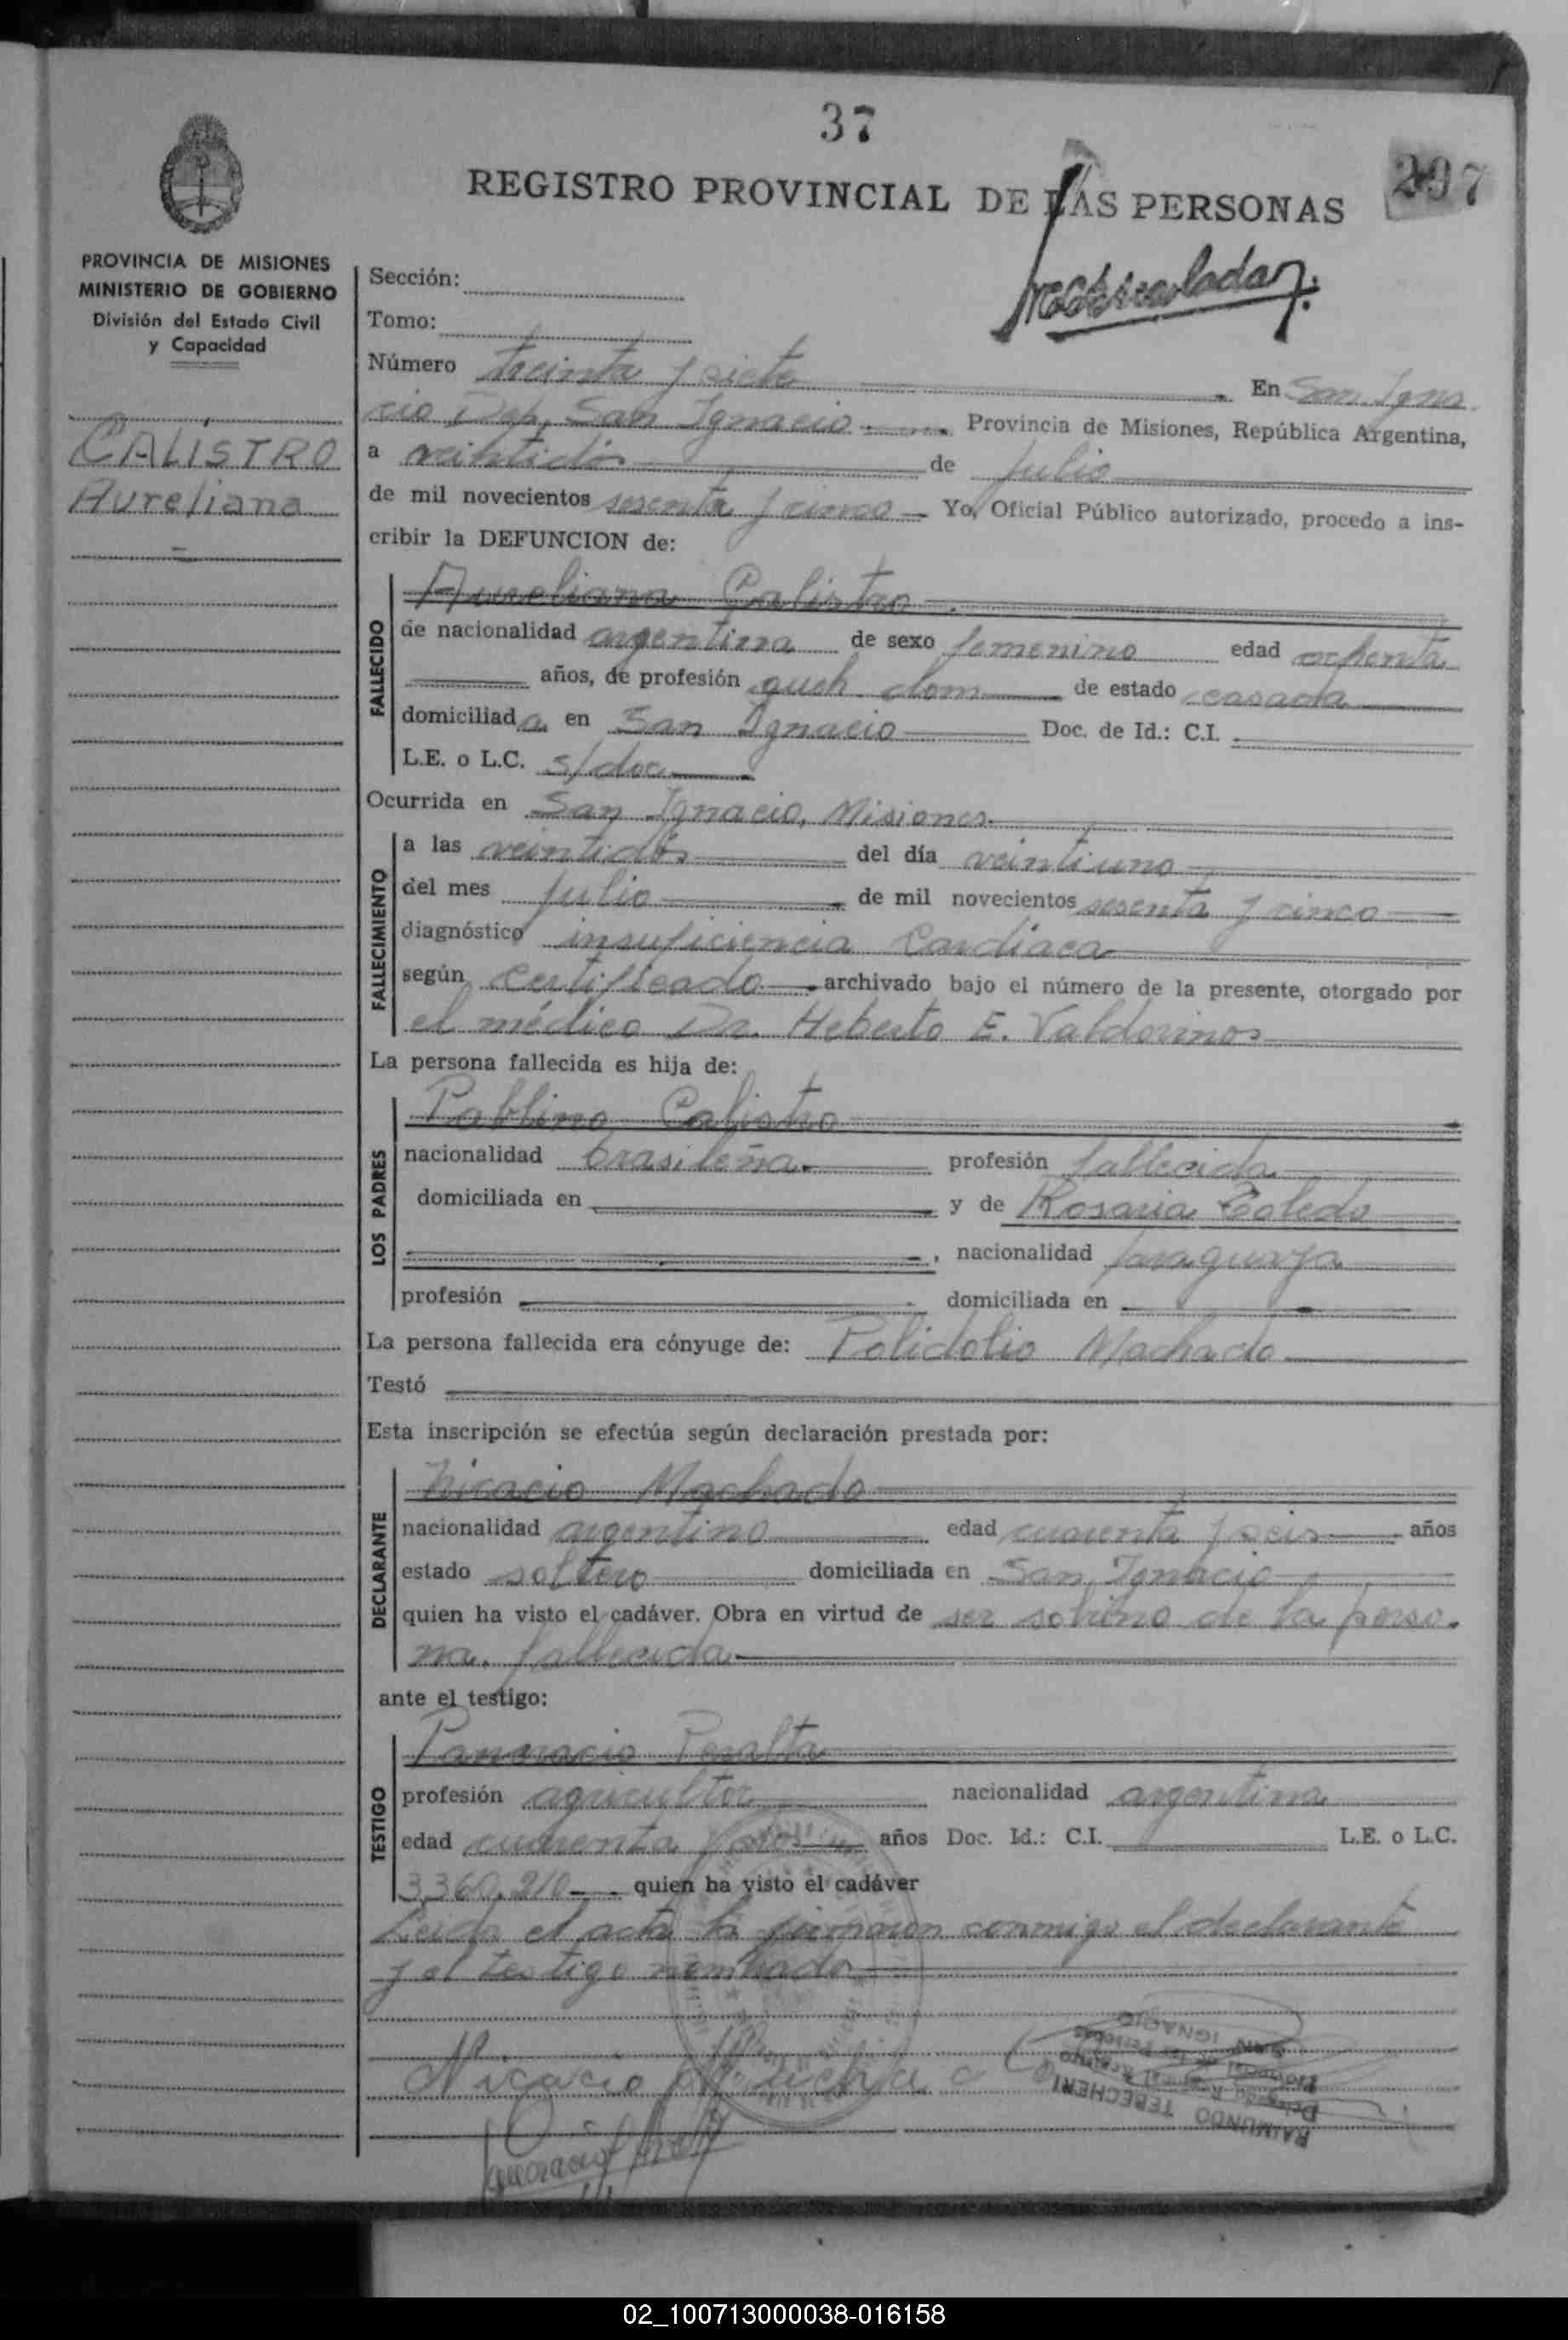 37
297
REGISTRO PROVINCIAL DE LAS PERSONAS
PROVINCIA DE MISIONES
MINISTERIO DE GOBIERNO
División del Estado Civil
y Capacidad
CALISTRO
Aureliana
Sección:
Tomo:
Número treinta y siete En San Igna
cio Dep. San Ignacio Provincia de Misiones, República Argentina,
a veintidós de julio
de mil novecientos sesenta y cinco Yo, Oficial Público autorizado, procedo a ins-
cribir la DEFUNCION de:
FALLECIDO
Aureliana Calistro
de nacionalidad argentina de sexo femenino edad ochenta
años, de profesión queh. dom. de estado casada
domiciliada en San Ignacio Doc. de Id.: C.I.
L.E. o L.C. s/doc.
Ocurrida en San Ignacio, Misiones.
FALLECIMIENTO
a las veintidós del día veintiuno
del mes julio de mil novecientos sesenta y cinco
diagnóstico insuficiencia Cardíaca
según certificado archivado bajo el número de la presente, otorgado por
el médico Dr. Heberto E. Valdovinos
La persona fallecida es hija de:
LOS PADRES
Pablino Calistro
nacionalidad brasileña. profesión fallecida
domiciliada en y de Rosaria Toledo
, nacionalidad paraguaya
profesión domiciliada en
La persona fallecida era cónyuge de: Polidolio Machado
Testó
Esta inscripción se efectúa según declaración prestada por:
DECLARANTE
Nicacio Machado
nacionalidad argentino edad cuarenta y seis años
estado soltero domiciliada en San Ignacio
quien ha visto el cadáver. Obra en virtud de ser sobrino de la perso-
na fallecida
ante el testigo:
TESTIGO
Pancracio Peralta
profesión agricultor nacionalidad argentina
edad cuarenta y dos años Doc. Id.: C.I. L.E. o L.C.
3.360.210 quien ha visto el cadáver
Leída el acta la firmaron conmigo el declarante
y el testigo nombrado
Nicacio
RAIMUNDO TERECHERI
SAN IGNACIO
02_100713000038-016158